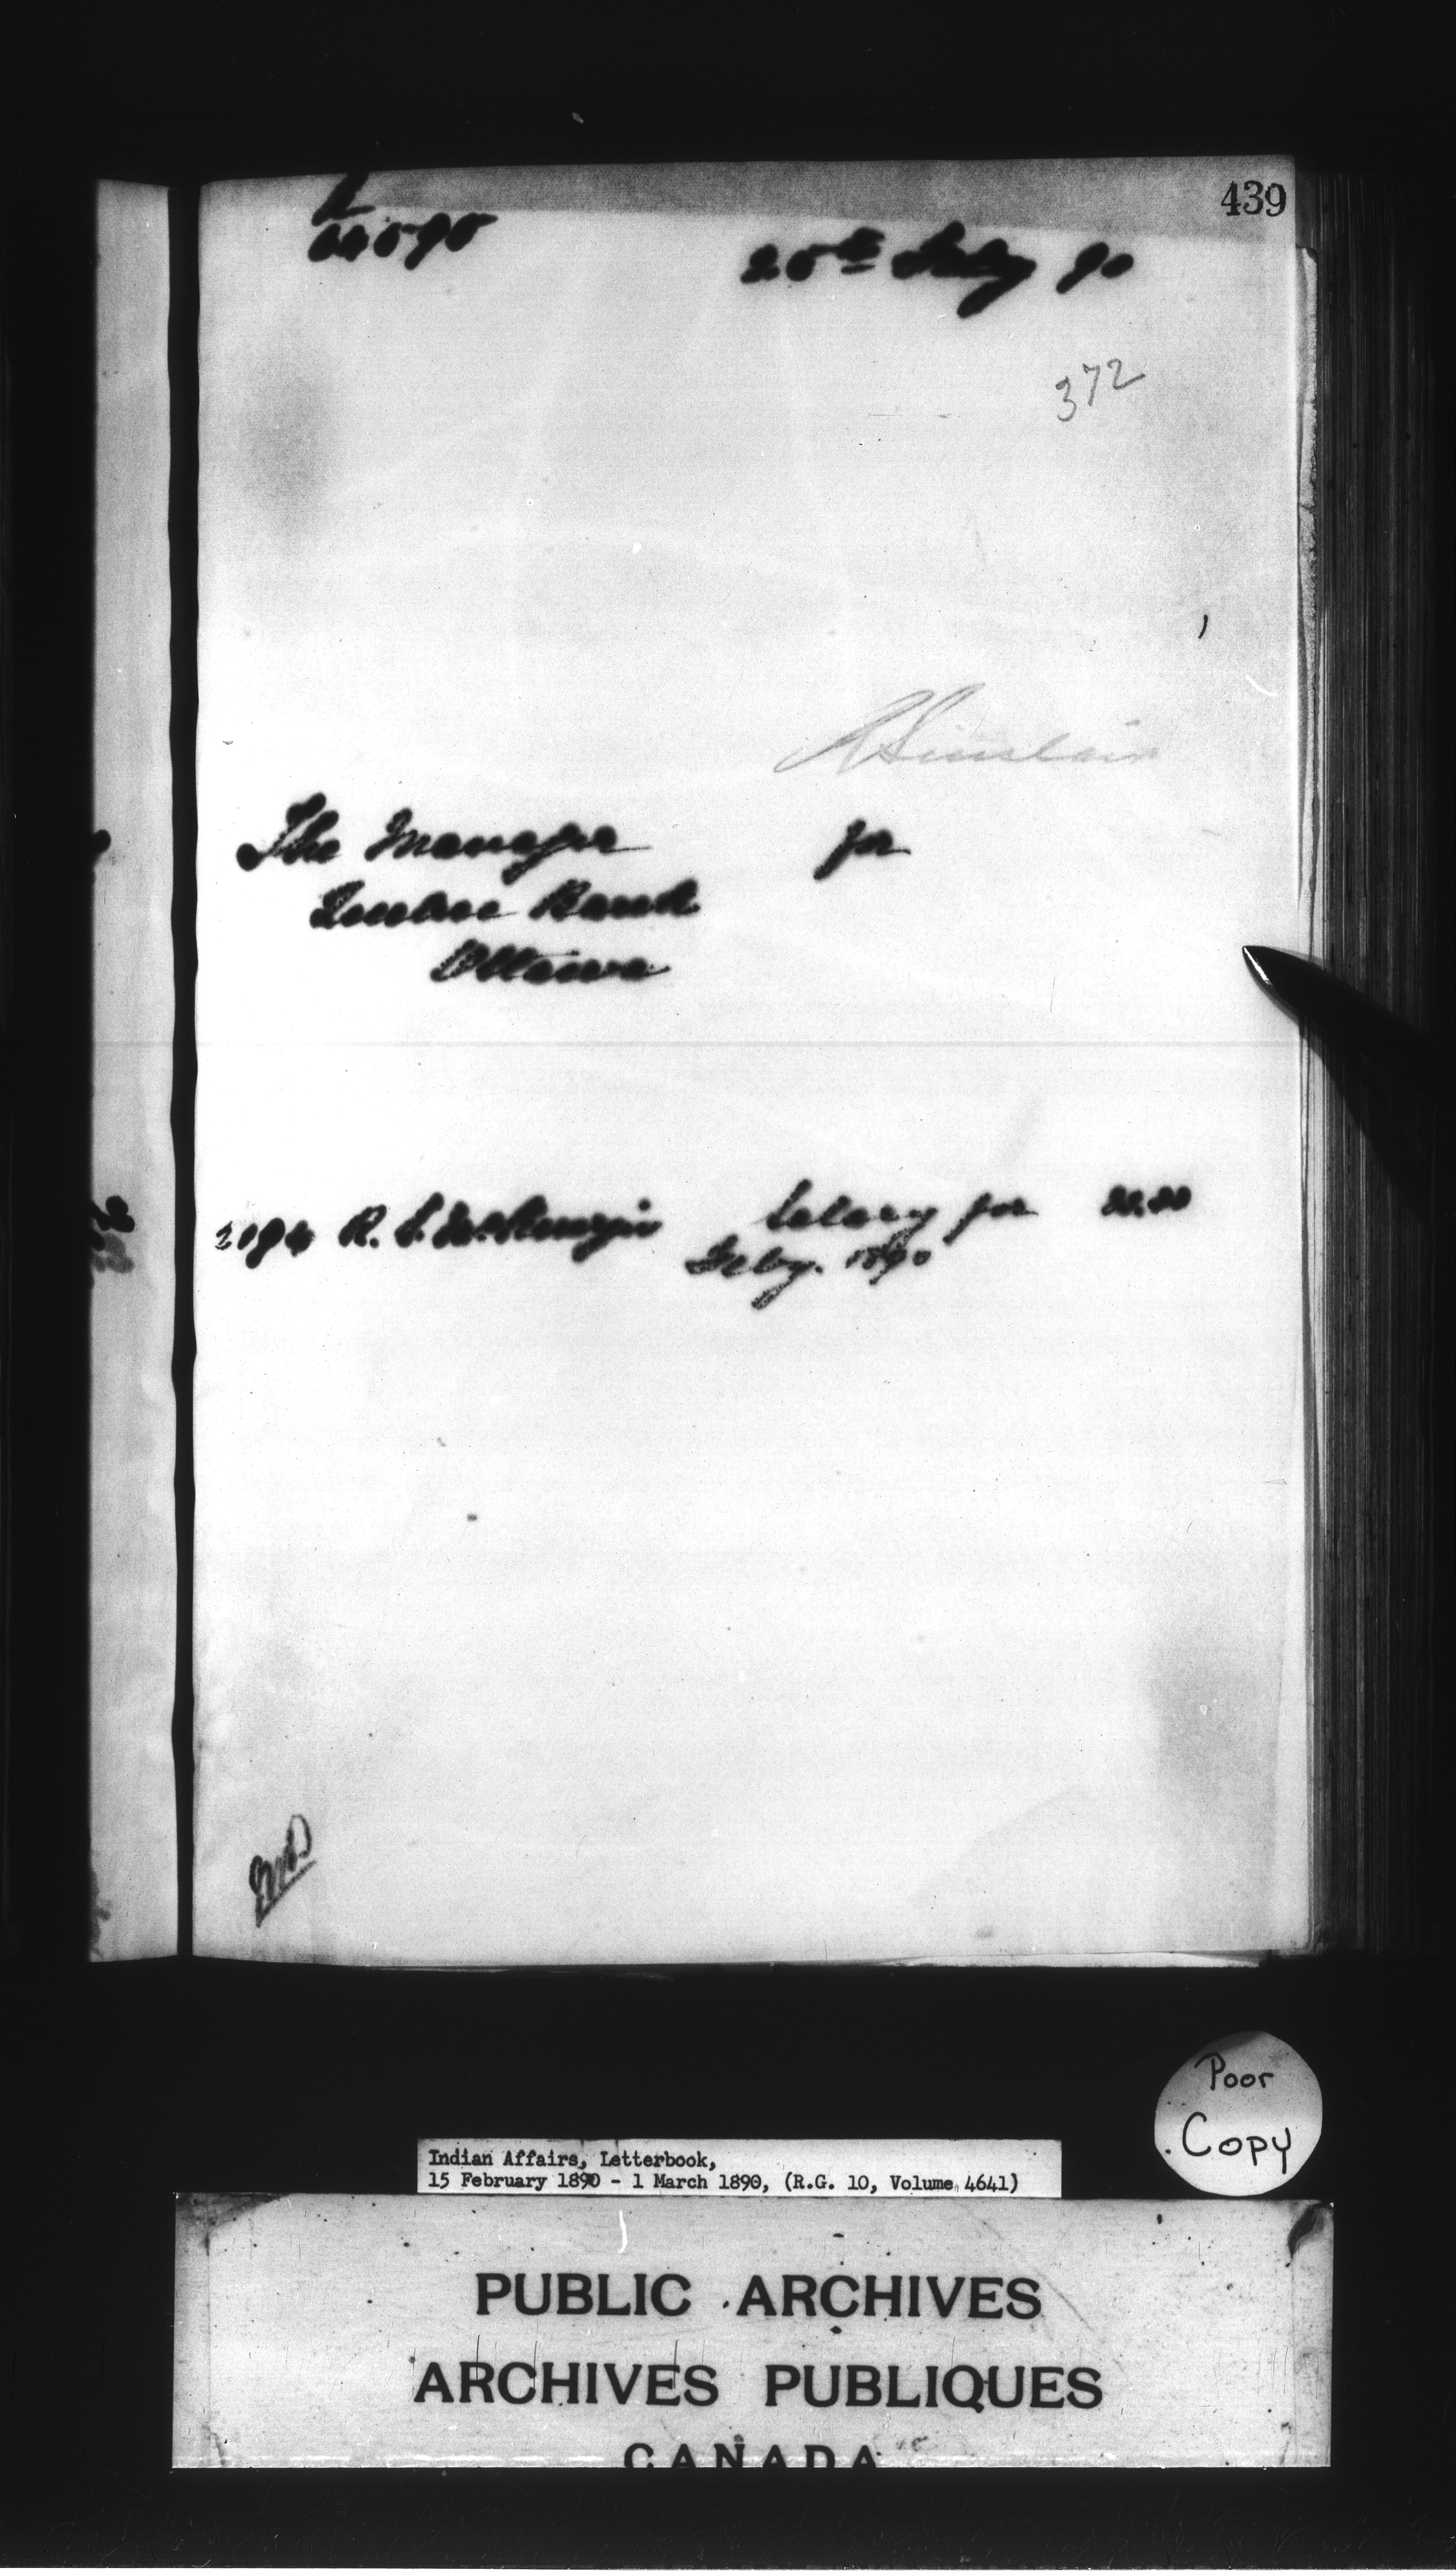 439
L
64590
25th Feby 90
372
R Sinclair
The Manager for
Quebec Bank
Ottawa
2194 R. S. McKenzie Salary for
Feby. 1890
Poor
Copy
Indian Affairs, Letterbook,
15 February 1890 - 1 March 1890, (R.G. 10, Volume 4641)
PUBLIC ARCHIVES
ARCHIVES PUBLIQUES
CANADA